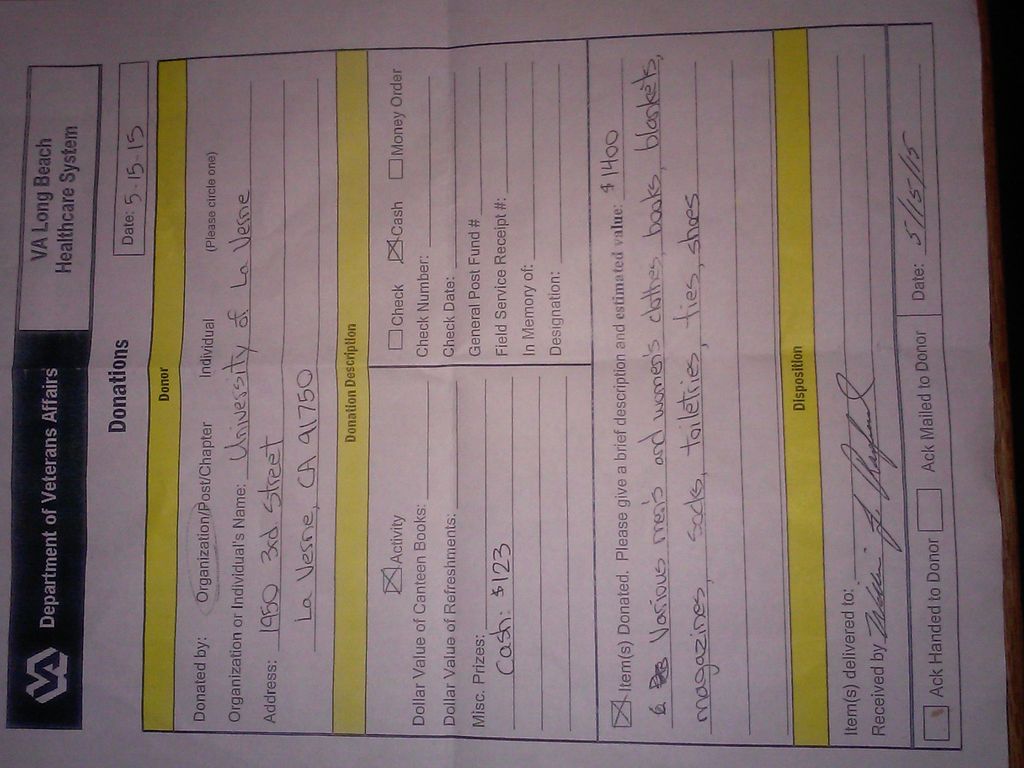 VA Department of Veterans Affairs
VA Long Beach
Healthcare System
Donations
Date: 5-15-15
Donor
Donated by: Organization/Post/Chapter Individual (Please circle one)
Organization or Individual's Name: University of La Verne
Address: 1950 3rd Street
La Verne, CA 91750
Donation Description
Activity
Dollar Value of Canteen Books:
Dollar Value of Refreshments:
Misc. Prizes:
Cash: $123
Check Cash Money Order
Check Number:
Check Date:
General Post Fund #
Field Service Receipt #:
In Memory of:
Designation:
Item(s) Donated. Please give a brief description and estimated value: $1400
Various men's and women's clothes, books, blankets,
magazines, socks, toiletries, ties, shoes
Disposition
Item(s) delivered to:
Received by
Date: 5/15/15
Ack Handed to Donor Ack Mailed to Donor